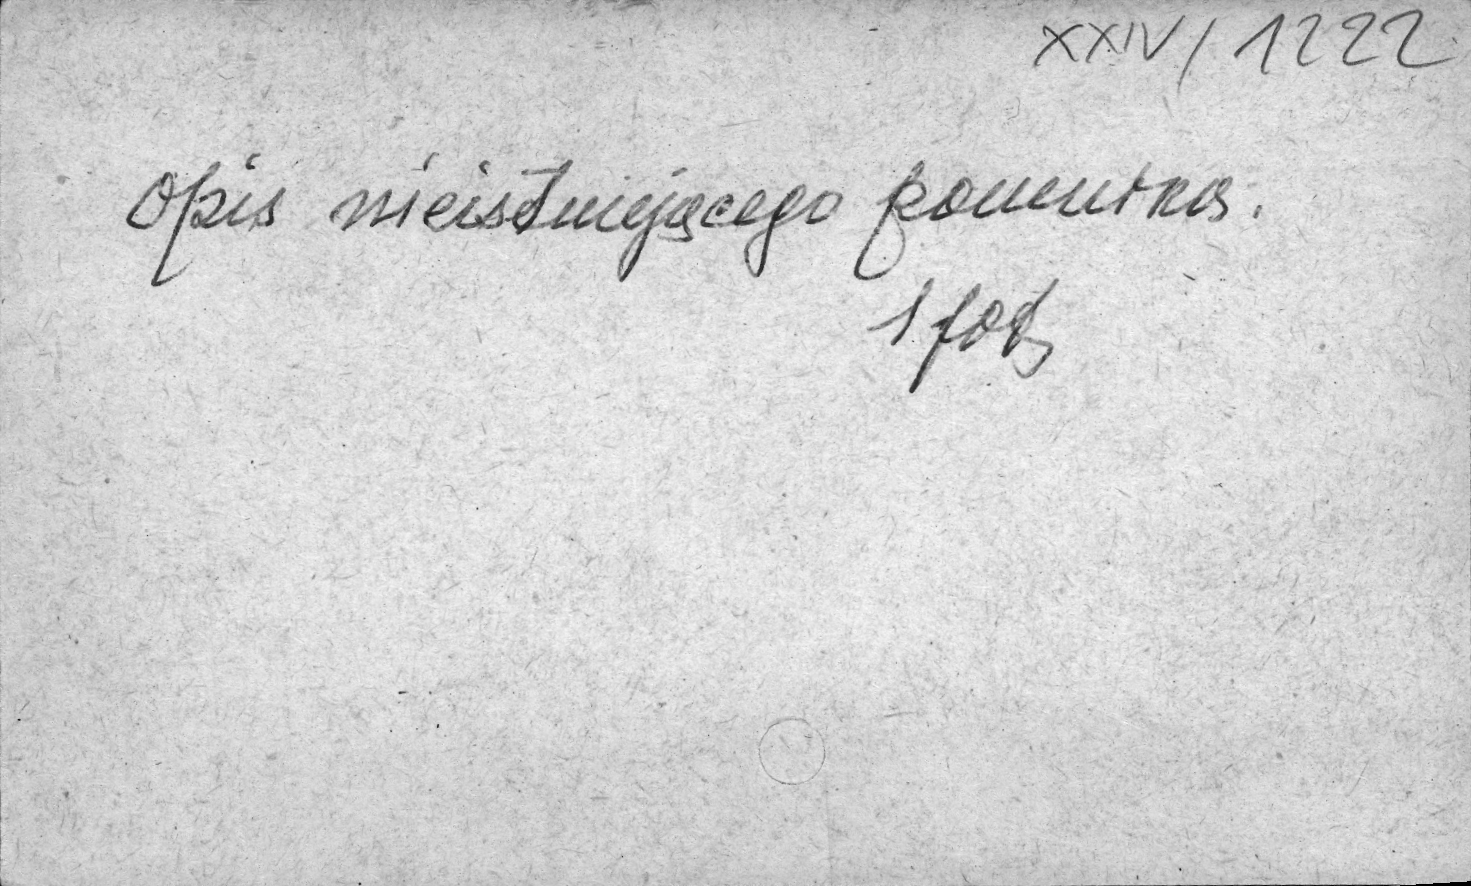 XXIV/1222
Opis nieistniejącego pomnika.
1 fot